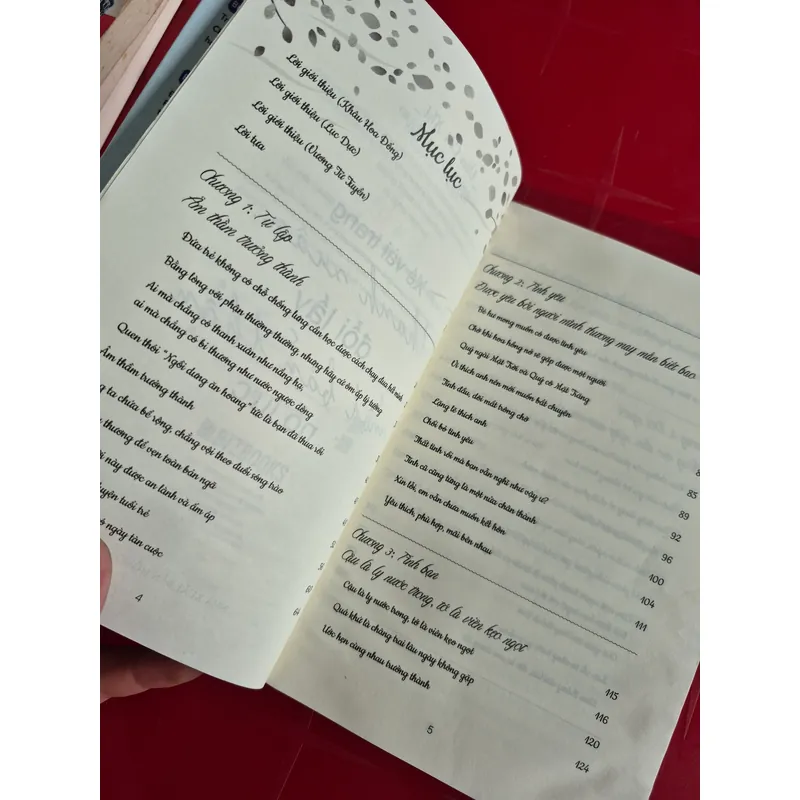 Mục lục
Lời giới thiệu (Khâu Hoa Đồng)
Lời giới thiệu (Lục Dục)
Lời giới thiệu (Vương Tử Tuyền)
Lời tựa
Chương 1: Tự lập
Âm thầm trưởng thành
Đứa trẻ không có chỗ chống lưng cần học được cách chạy đua hết mình
Bằng lòng với phận thường thường, nhưng hãy cứ ôm ấp lý tưởng
Ai mà chẳng có thanh xuân như nắng hạ,
ai mà chẳng có bi thương như nước ngược dòng
Quen thói "Ngồi dưng ăn hoang" tức là bạn đã thua rồi
Âm thầm trưởng thành
ta chứa bể vọng, chẳng vội theo đuổi sóng trào
thương để vẹn toàn bản ngã
này được an lành và ấm áp
tuổi trẻ
ngày tàn cuộc
4
Chương 2: Tình yêu
Được yêu bởi người mình thương may mắn biết bao
Bé hư mong muốn có được tình yêu
Chờ khi hoa hồng nở sẽ gặp được một người
Quý ngài Mặt Trời và Quý cô Mặt Trăng
Vì thích anh nên mới muốn bắt chuyện
Tình đầu, dõi mắt trông chờ
Lặng lẽ thích anh
Chối bỏ tình yêu
Thất tình rồi mà bạn vẫn nghĩ như vậy ư?
Tình cũ cũng từng là một nửa chân thành
Xin lỗi, em vẫn chưa muốn kết hôn
Yêu thích, phù hợp, mãi bên nhau
85
89
92
96
100
104
111
Chương 3: Tình bạn
Cậu là ly nước trong, tớ là viên kẹo ngọt
Cậu là ly nước trong, tớ là viên kẹo ngọt
Quá khứ là chàng trai lâu ngày không gặp
Ước hẹn cùng nhau trưởng thành
115
116
120
124
5